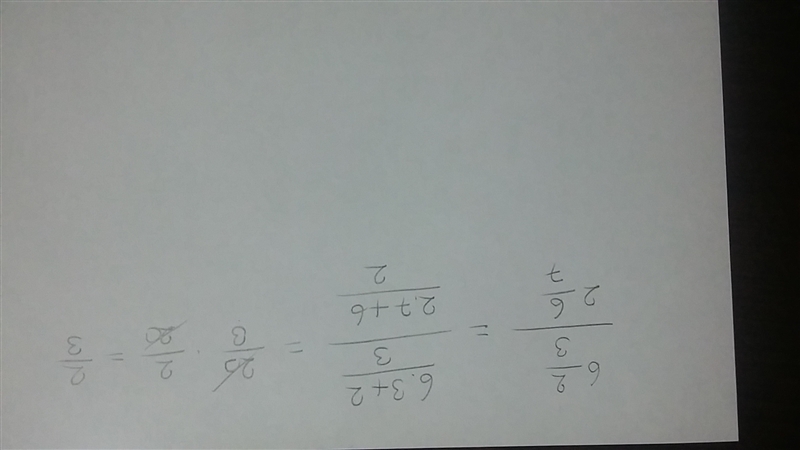 6 2/3 / 2 6/7 = (6·3+2)/3 / (2·7+6)/2 = 20/3 · 2/20 = 2/3